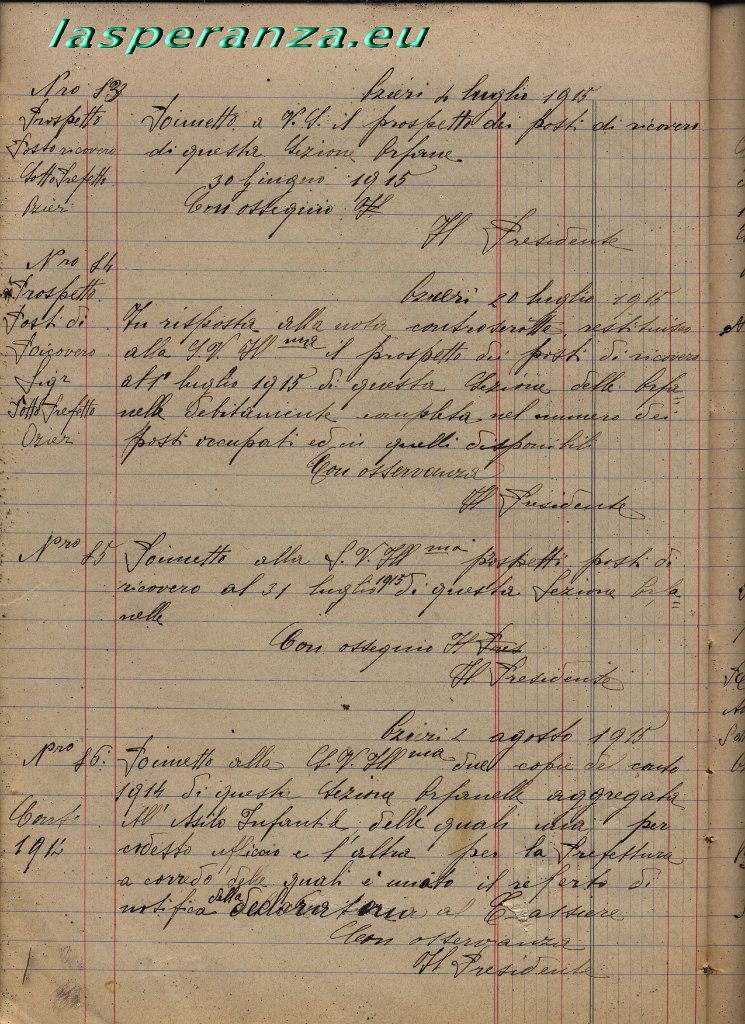 lasperanza.eu
Nro 83
Ozieri 4 luglio 1915
Prospetto
Posto ricovero
Sotto Prefetto
Ozieri
Rimetto a V. S. il prospetto dei posti di ricovero
di questa Sezione Orfane
30 Giugno 1915
Con ossequio Il
Il Presidente
Nro 84
Ozieri 20 luglio 1915
Prospetto
Posti di
Ricovero
Sigr
Sotto Prefetto
Ozier
In risposta alla nota controscritta, restituisco
alla S. V. Illma il prospetto dei posti di ricovero
all'1° luglio 1915 di questa Sezione delle Orfa=
nelle debitamente completa nel numero dei
posti occupati ed in quelli disponibili
Con osservanza
Il Presidente
Nro 85
Rimetto alla S. V. Illma prospetti posti di
ricovero al 31 luglio 1915 di questa Sezione Orfa=
nelle
Con ossequio Il Pres
Il Presidente
Ozieri 2 agosto 1915
Nro 86.
Conto
1914
Rimetto alla S. V. Illma due copie del conto
1914 di questa Sezione Orfanelle aggregata
All' Asilo Infantile delle quali una per
codesto ufficio e l'altra per la Prefettura
a corredo delle quali è unito il referto di
notifica della dichiaratoria al Cassiere
Con osservanza
Il Presidente